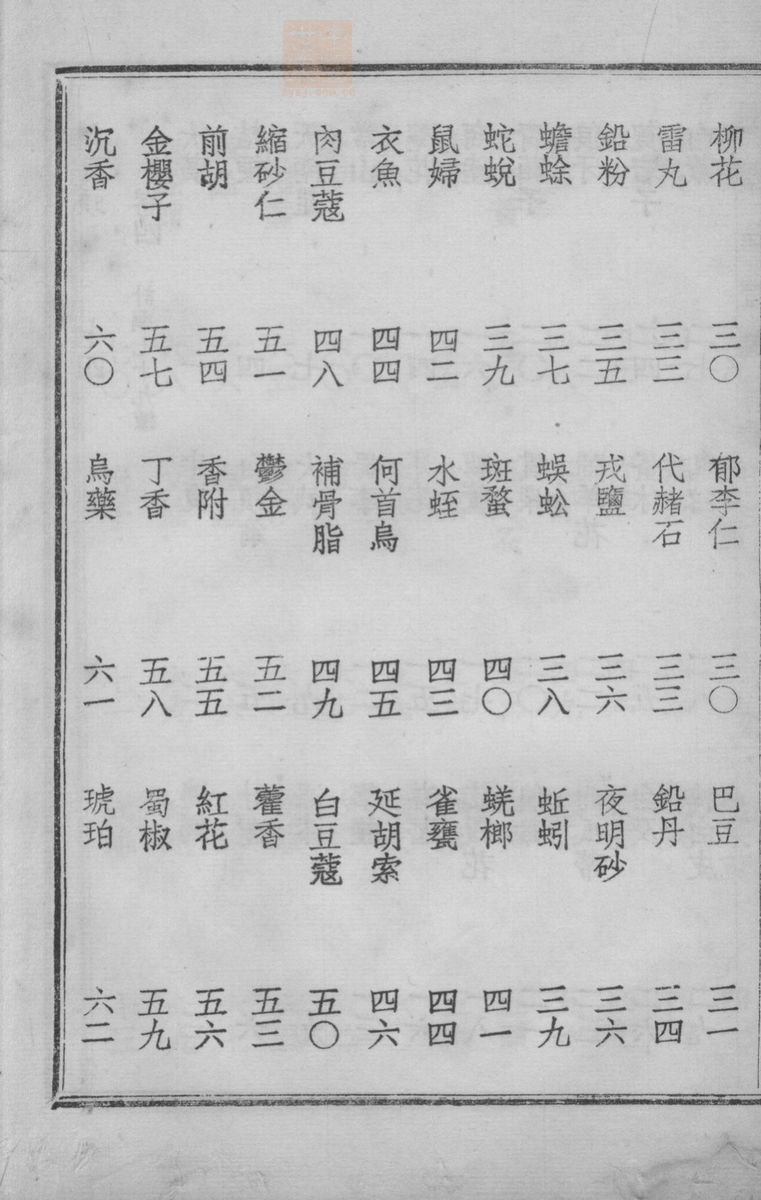 柳花 三〇 郁李仁 三〇 巴豆 三一
雷丸 三三 代赭石 三三 鉛丹 三四
鉛粉 三五 戎鹽 三六 夜明砂 三六
蟾蜍 三七 蜈蚣 三八 蚯蚓 三九
蛇蛻 三九 斑蝥 四〇 蜣榔 四一
鼠婦 四二 水蛭 四三 雀甕 四四
衣魚 四四 何首烏 四五 延胡索 四六
肉豆蔻 四八 補骨脂 四九 白豆蔻 五〇
縮砂仁 五一 鬱金 五二 藿香 五三
前胡 五四 香附 五五 紅花 五六
金櫻子 五七 丁香 五八 蜀椒 五九
沉香 六〇 烏藥 六一 琥珀 六二